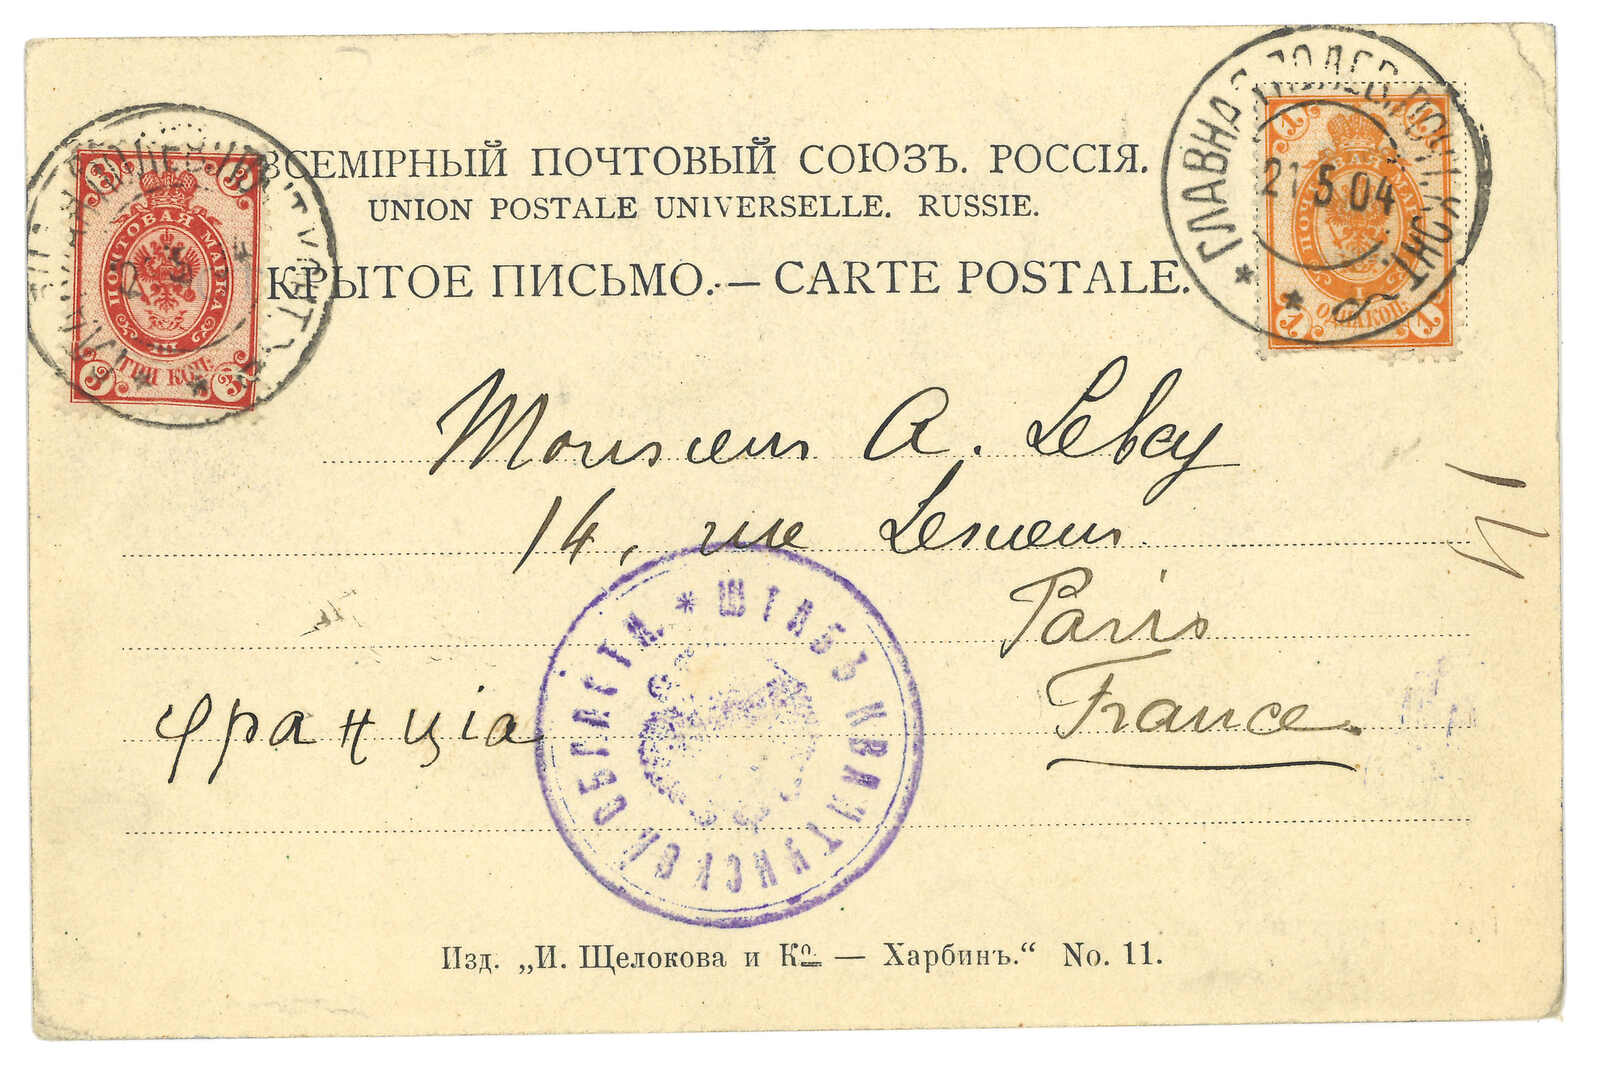 ВСЕМІРНЫЙ ПОЧТОВЫЙ СОЮЗЪ. РОССІЯ.
UNION POSTALE UNIVERSELLE. RUSSIE.
КРЫТОЕ ПИСЬМО. — CARTE POSTALE.
3 3
ПОЧТОВАЯ МАРКА
ТРИ КОП.
3 3
1 1
ПОЧТОВАЯ МАРКА
1
ОДНА КОП.
1 1
ГЛАВНАЯ ПОЛЕВ. ПОЧТ. КОНТ.
21 5 04
Monsieur A. Lebey
14, rue Lesueur
Paris
France
франціа
* ШТАБЪ КВАНТУНСКОЙ ОБЛАСТИ.
Изд. „И. Щелокова и Ко — Харбинъ.“ No. 11.